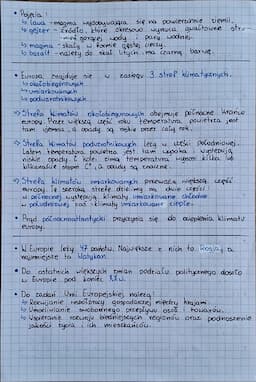 • Pojęcia:
↳ lawa - magma wydobywająca się na powierzchnię ziemi.
↳ gejzer - źródło, które okresowo wyrzuca gwałtownie
gorącej wody i pary wodnej.
↳ magma - skały w formie gęstej cieczy.
↳ bazalt - należy do skał litych, ma czarną barwę.
• Europa znajduje się w zasięgu 3 stref klimatycznych.
↳ okołobiegunowych
↳ umiarkowanych
↳ podzwrotnikowych
Strefa klimatów okołobiegunowych obejmuje północne krańce
europy. Przez większą część roku temperatura powietrza jest
tam a opady są niskie przez cały rok.
Strefa klimatów podzwrotnikowych leży w części południowej.
Latem temperatura powietrza jest tam wysoka występują
niskie opady. Z kolei zimą temperatura wynosi kilka lub
kilkanaście stopni C°, a opady są znaczne.
Strefa klimatów umiarkowanych przeważa większą część
europy. Tę szeroką strefę dzielimy na dwie części:
w północnej występują klimaty umiarkowane chłodne
w południowej zaś klimaty umiarkowane ciepłe.
• Prąd północnoatlantycki przyczynia się do ocieplenia klimatu
europy.
• W Europie leży 47 państw. Największe z nich to Rosja, a
najmniejsze to Watykan.
• Do ostatnich większych zmian podziału politycznego doszło
w Europie pod koniec XXw.
• Do zadań Unii Europejskiej należą:
↳ Rozwijanie współpracy gospodarczej między krajami.
↳ Umożliwianie swobodnego przepływu osób i towarów.
↳ Wspieranie rozwoju biedniejszych regionów oraz podnoszenie
jakości życia ich mieszkańców.